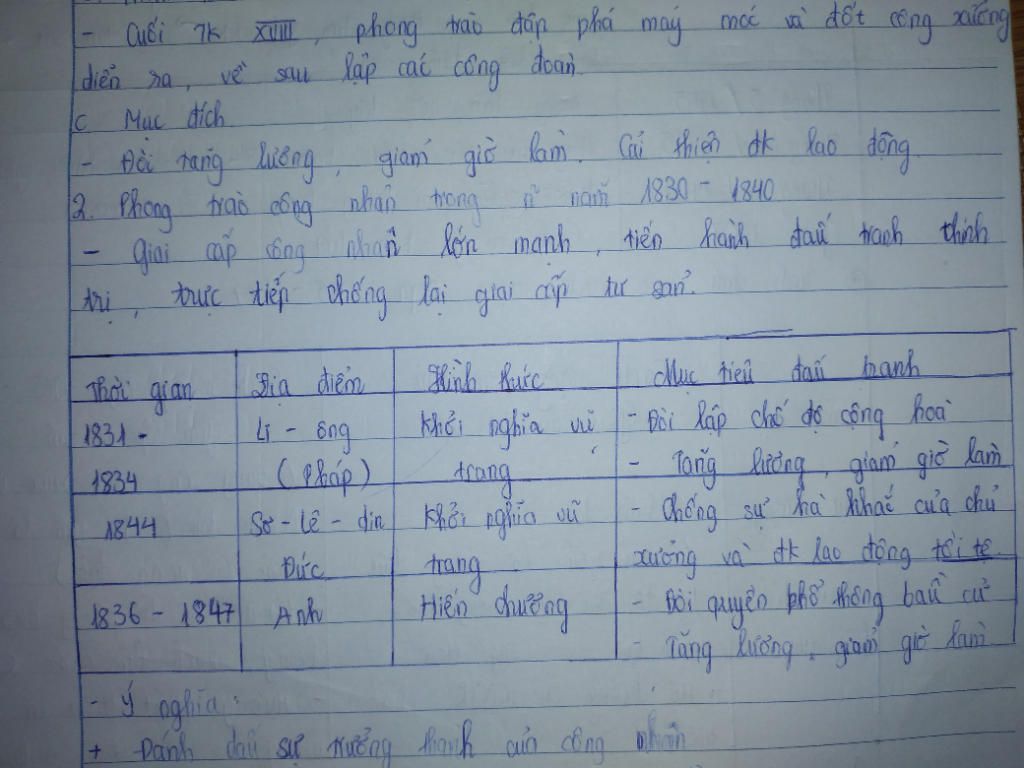 - Cuối TK XVIII, phong trào đập phá máy móc và đốt công xưởng
diễn ra, về sau lập các công đoàn.
c Mục đích
- Đòi tăng lương, giảm giờ làm. Cải thiện đk lao động
2. Phong trào công nhân trong n~ năm 1830 - 1840
- Giai cấp công nhân lớn mạnh, tiến hành đấu tranh chính
trị, trực tiếp chống lại giai cấp tư sản.
Thời gian Địa điểm Hình thức Mục tiêu đấu tranh
1831 - Li - ông Khởi nghĩa vũ - Đòi lập chế độ cộng hoà
1834 (Pháp) trang - Tăng lương, giảm giờ làm
1844 Sơ - lê - din Khởi nghĩa vũ - Chống sự hà khắc của chủ
Đức trang xưởng và đk lao động tồi tệ
1836 - 1847 Anh Hiến chương - Đòi quyền phổ thông bầu cử
- Tăng lương, giảm giờ làm
- Ý nghĩa:
+ Đánh dấu sự trưởng thành của công nhân